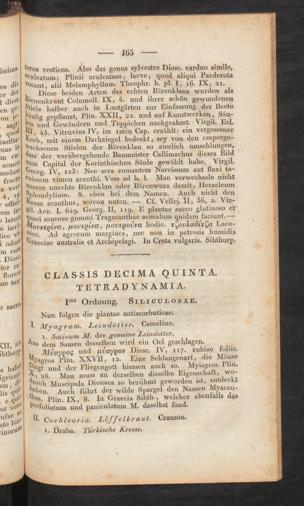 — 465 —
toros vesticus. Also das genus sylvestre Diosc. carduo simile,
aculeatum; Plinii aculeatum, laeve, quod aliqui Paederota
vocant, alii Melamphyllum. Theophr. h. pl. I, 16. IX, 21.
Diese beiden Arten des echten Bärenklaus wurden als
Bienenkraut Columell. IX, 4. und ihrer schön gewundenen
Stiele halber auch in Lustgärten zur Einfassung der Beete
häufig gepflanzt, Plin. XXII, 22. und auf Kunstwerken, Säu-
len und Gewändern und Teppichen nachgeahmt. Virgil. Ecl.
III, 45. Vitruvius IV, im 1sten Cap. erzählt: ein vergessener
Korb, mit einem Dachziegel bedeckt, sey von den emporge-
wachsenen Stielen der Bärenklau so zierlich umschlungen,
daſs der vorübergehende Baumeister Callimachus dieses Bild
zum Capital der Korinthischen Säule gewählt habe, Virgil.
Georg. IV, 123: Nec sera comantem Narcissum aut flexi ta-
cuissem vimen acanthi. Voss ad h. l. Man verwechsele nicht
unsere unechte Bärenklau oder Bärenwurz damit, Heracleum
Sphondylium. S. oben bei dem Namen. Auch nicht den
Baum acanthus, wovon unten. — Cf. Vellej. II, 56, 2. Vir-
gil. Aen. I, 649. Georg. II, 119. E plantae succo glutinoso et
quasi mucoso gummi Tragacanthae aemulum quidam faciunt. —
hodie.
Laco-
nice. Ad agrorum margines, nec non in petrosis humidis
Graeciae australis et Archipelagi. In Creta vulgaris. Sibthorp.
CLASSIS DECIMA QUINTA.
TETRADYNAMIA.
Iste Ordnung. SILICULOSAE.
Nun folgen die plantae antiscorbuticae.
I. Myagrum. Leindotter. Cameline.
1. Sativum M. der gemeine Leindotter.
Aus dem Samen desselben wird ein Oel geschlagen.
Μύαγρος und μύαγρον Diosc. IV, 117. rubiae foliis.
Myagros Plin. XXVII, 12. Eine Schlangenart, die Mäuse
fängt und der Fliegengott hiessen auch so. Myiagros Plin.
X, 28. Man muss an derselben dieselbe Eigenschaft, wo-
durch Muscipula Dionaea so berühmt geworden ist, entdeckt
haben. Auch führt der wilde Spargel den Namen Myacan-
thon. Plin. IX, 8. In Graecia Sibth., welcher ebenfalls das
perfoliatum und paniculatum M. daselbst fand.
II. Cochlearia. Löffelkraut. Cranson.
1. Draba. Türkische Kresse.